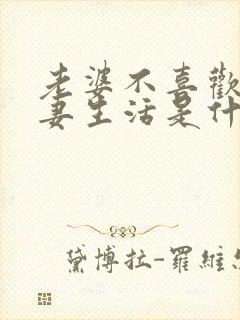 老婆不喜歡
妻生活是什
黛博拉-羅維